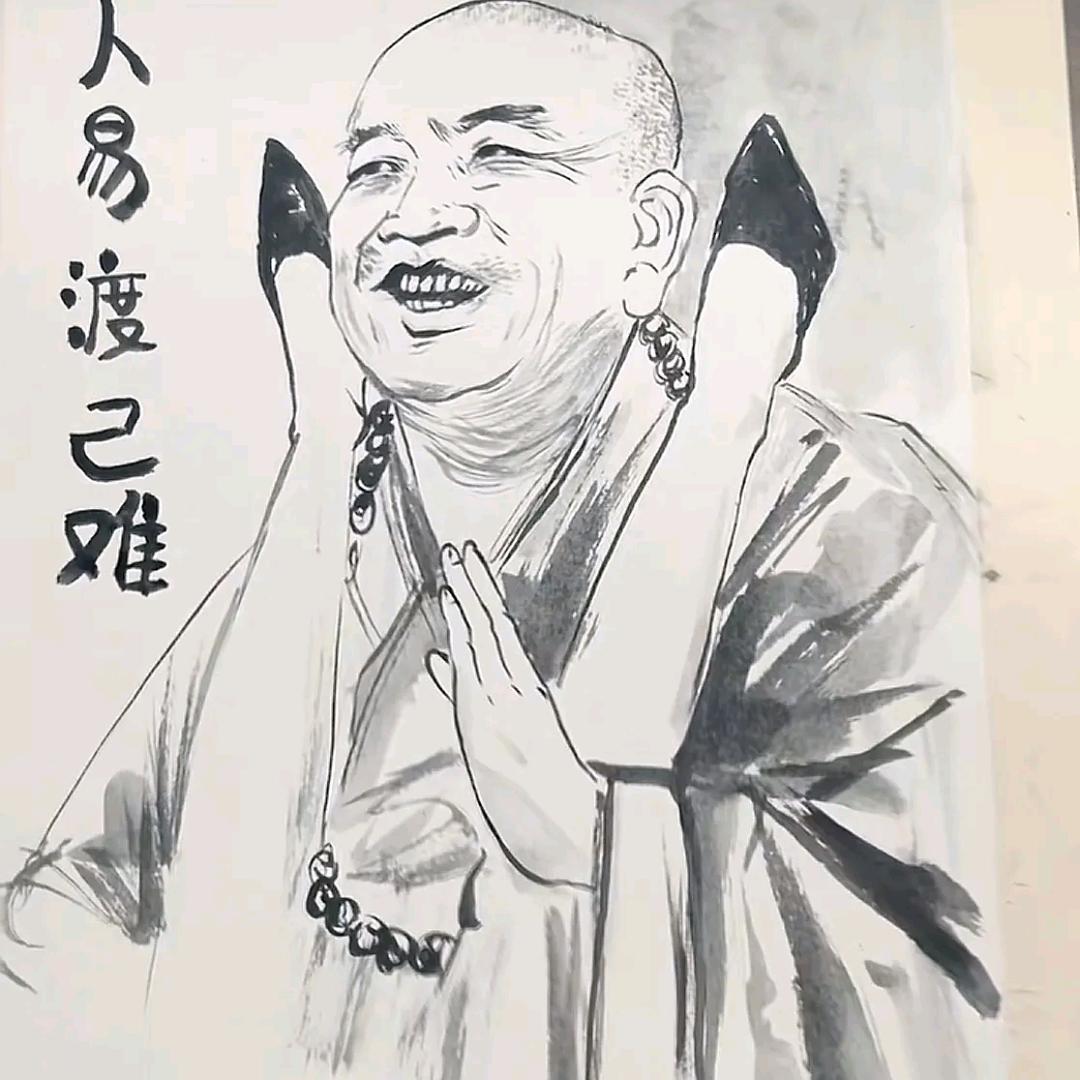 人易渡己难